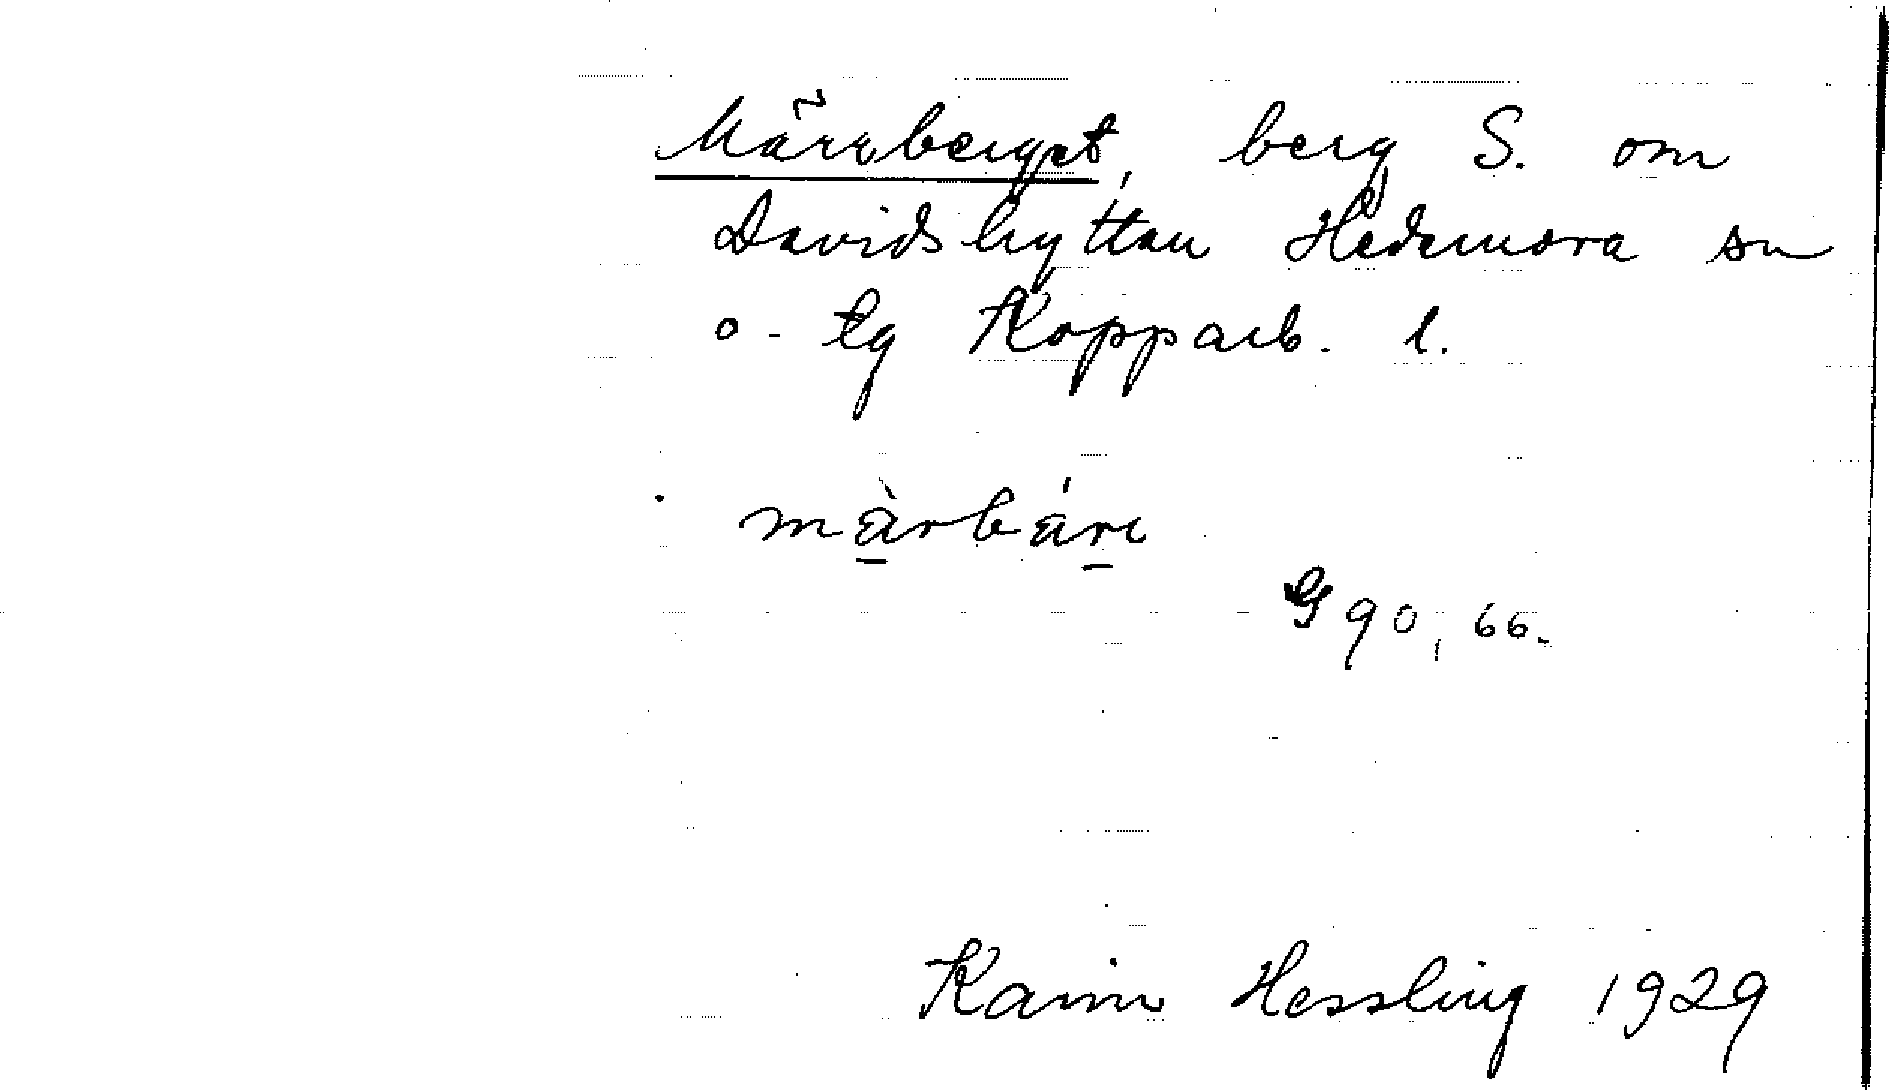 Märrberget, berg S. om
Davidshyttan Hedemora sn
o. tg Kopparb. l.
mä̀rbári
G 90, 66.
Karin Hessling 1929